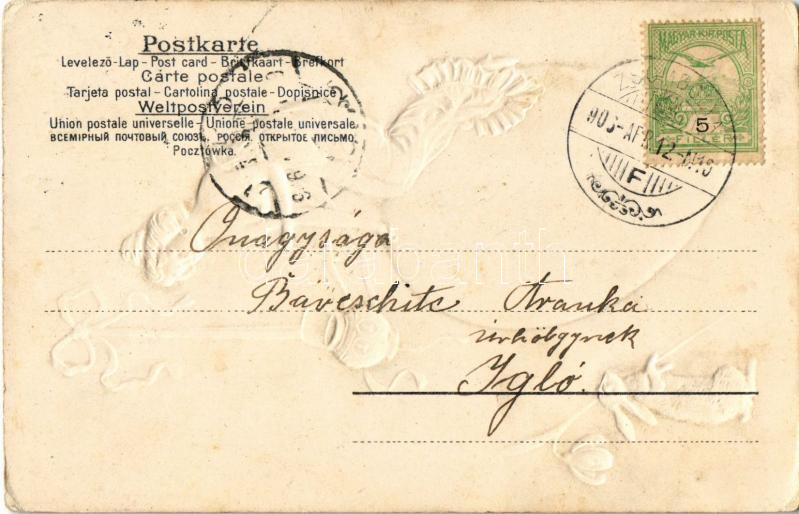 Postkarte
Levelező-Lap - Post card - Briefkaart - Brefkort
Carte postale
Tarjeta postal - Cartolina postale - Dopisnice
Weltpostverein
Union postale universelle - Unione postale universale
ВСЕМІРНЫЙ ПОЧТОВЫЙ СОЮЗЪ. РОССІЯ. ОТКРЫТОЕ ПИСЬМО.
Pocztówka.
MAGYAR KIR. POSTA
5
FILLÉR
F
Őnagysága
Baveschitz Aranka
úrhölgynek
Igló.
darabanth